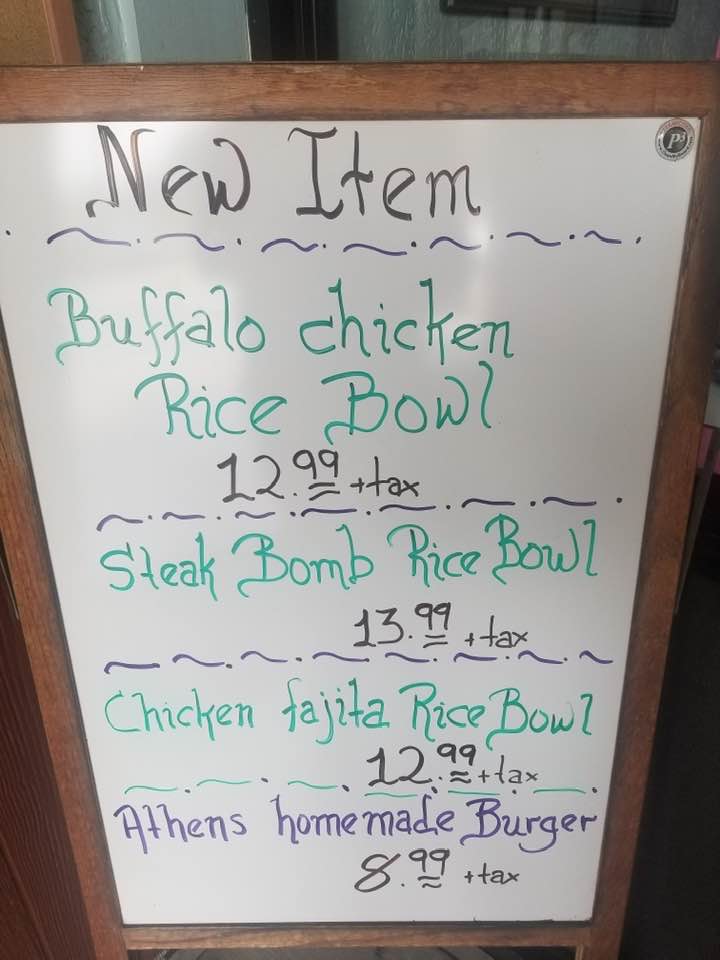 New Item
Buffalo chicken
Rice Bowl
12.99 + tax
Steak Bomb Rice Bowl
13.99 + tax
Chicken fajita Rice Bowl
12.99 + tax
Athens homemade Burger
8.99 + tax
P3